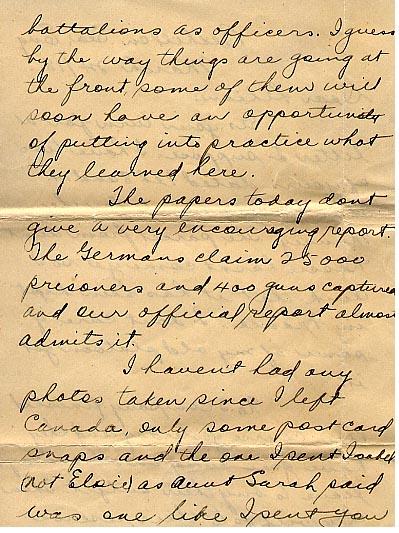 battalions as officers. I guess
by the way things are going at
the front some of them will
soon have an opportunity
of putting into practice what
they learned here.
The papers today dont
give a very encouraging report.
The Germans claim 25000
prisoners and 400 guns captured
and our official report almost
admits it.
I haven't had any
photos taken since I left
Canada, only some post card
snaps and the one I sent Isabel
(not Elsie) as Aunt Sarah said
was one like I sent you